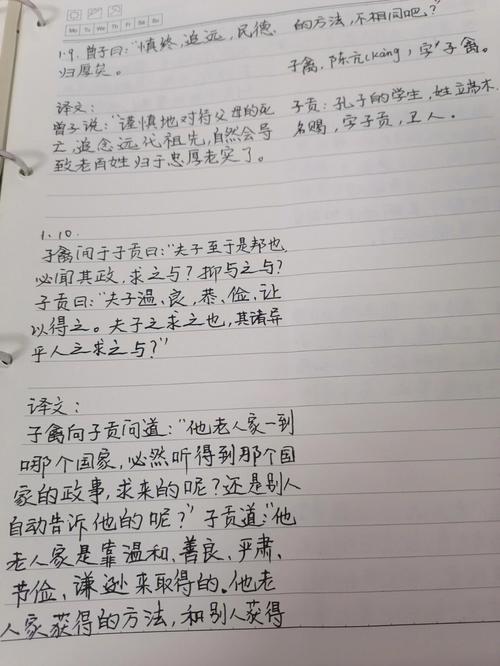 Mo Tu We Th Fr Sa Su
1.9. 曾子曰:“慎终,追远,民德
归厚矣。
译文:
曾子说:“谨慎地对待父母的死
亡,追念远代祖先,自然会导
致老百姓归于忠厚老实了。
1.10.
子禽问于子贡曰:“夫子至于是邦也
必闻其政,求之与?抑与之与?
子贡曰:“夫子温、良、恭、俭、让
以得之。夫子之求之也,其诸异
乎人之求之与?”
译文:
子禽向子贡问道:“他老人家一到
哪个国家,必然听得到那个国
家的政事,求来的呢?还是别人
自动告诉他的呢?”子贡道:“他
老人家是靠温和、善良、严肃、
节俭、谦逊来取得的。他老
人家获得的方法,和别人获得
的方法,不相同吧?”
子禽,陈亢(kàng),字子禽。
子贡:孔子的学生,姓端木
名赐,字子贡,卫人。